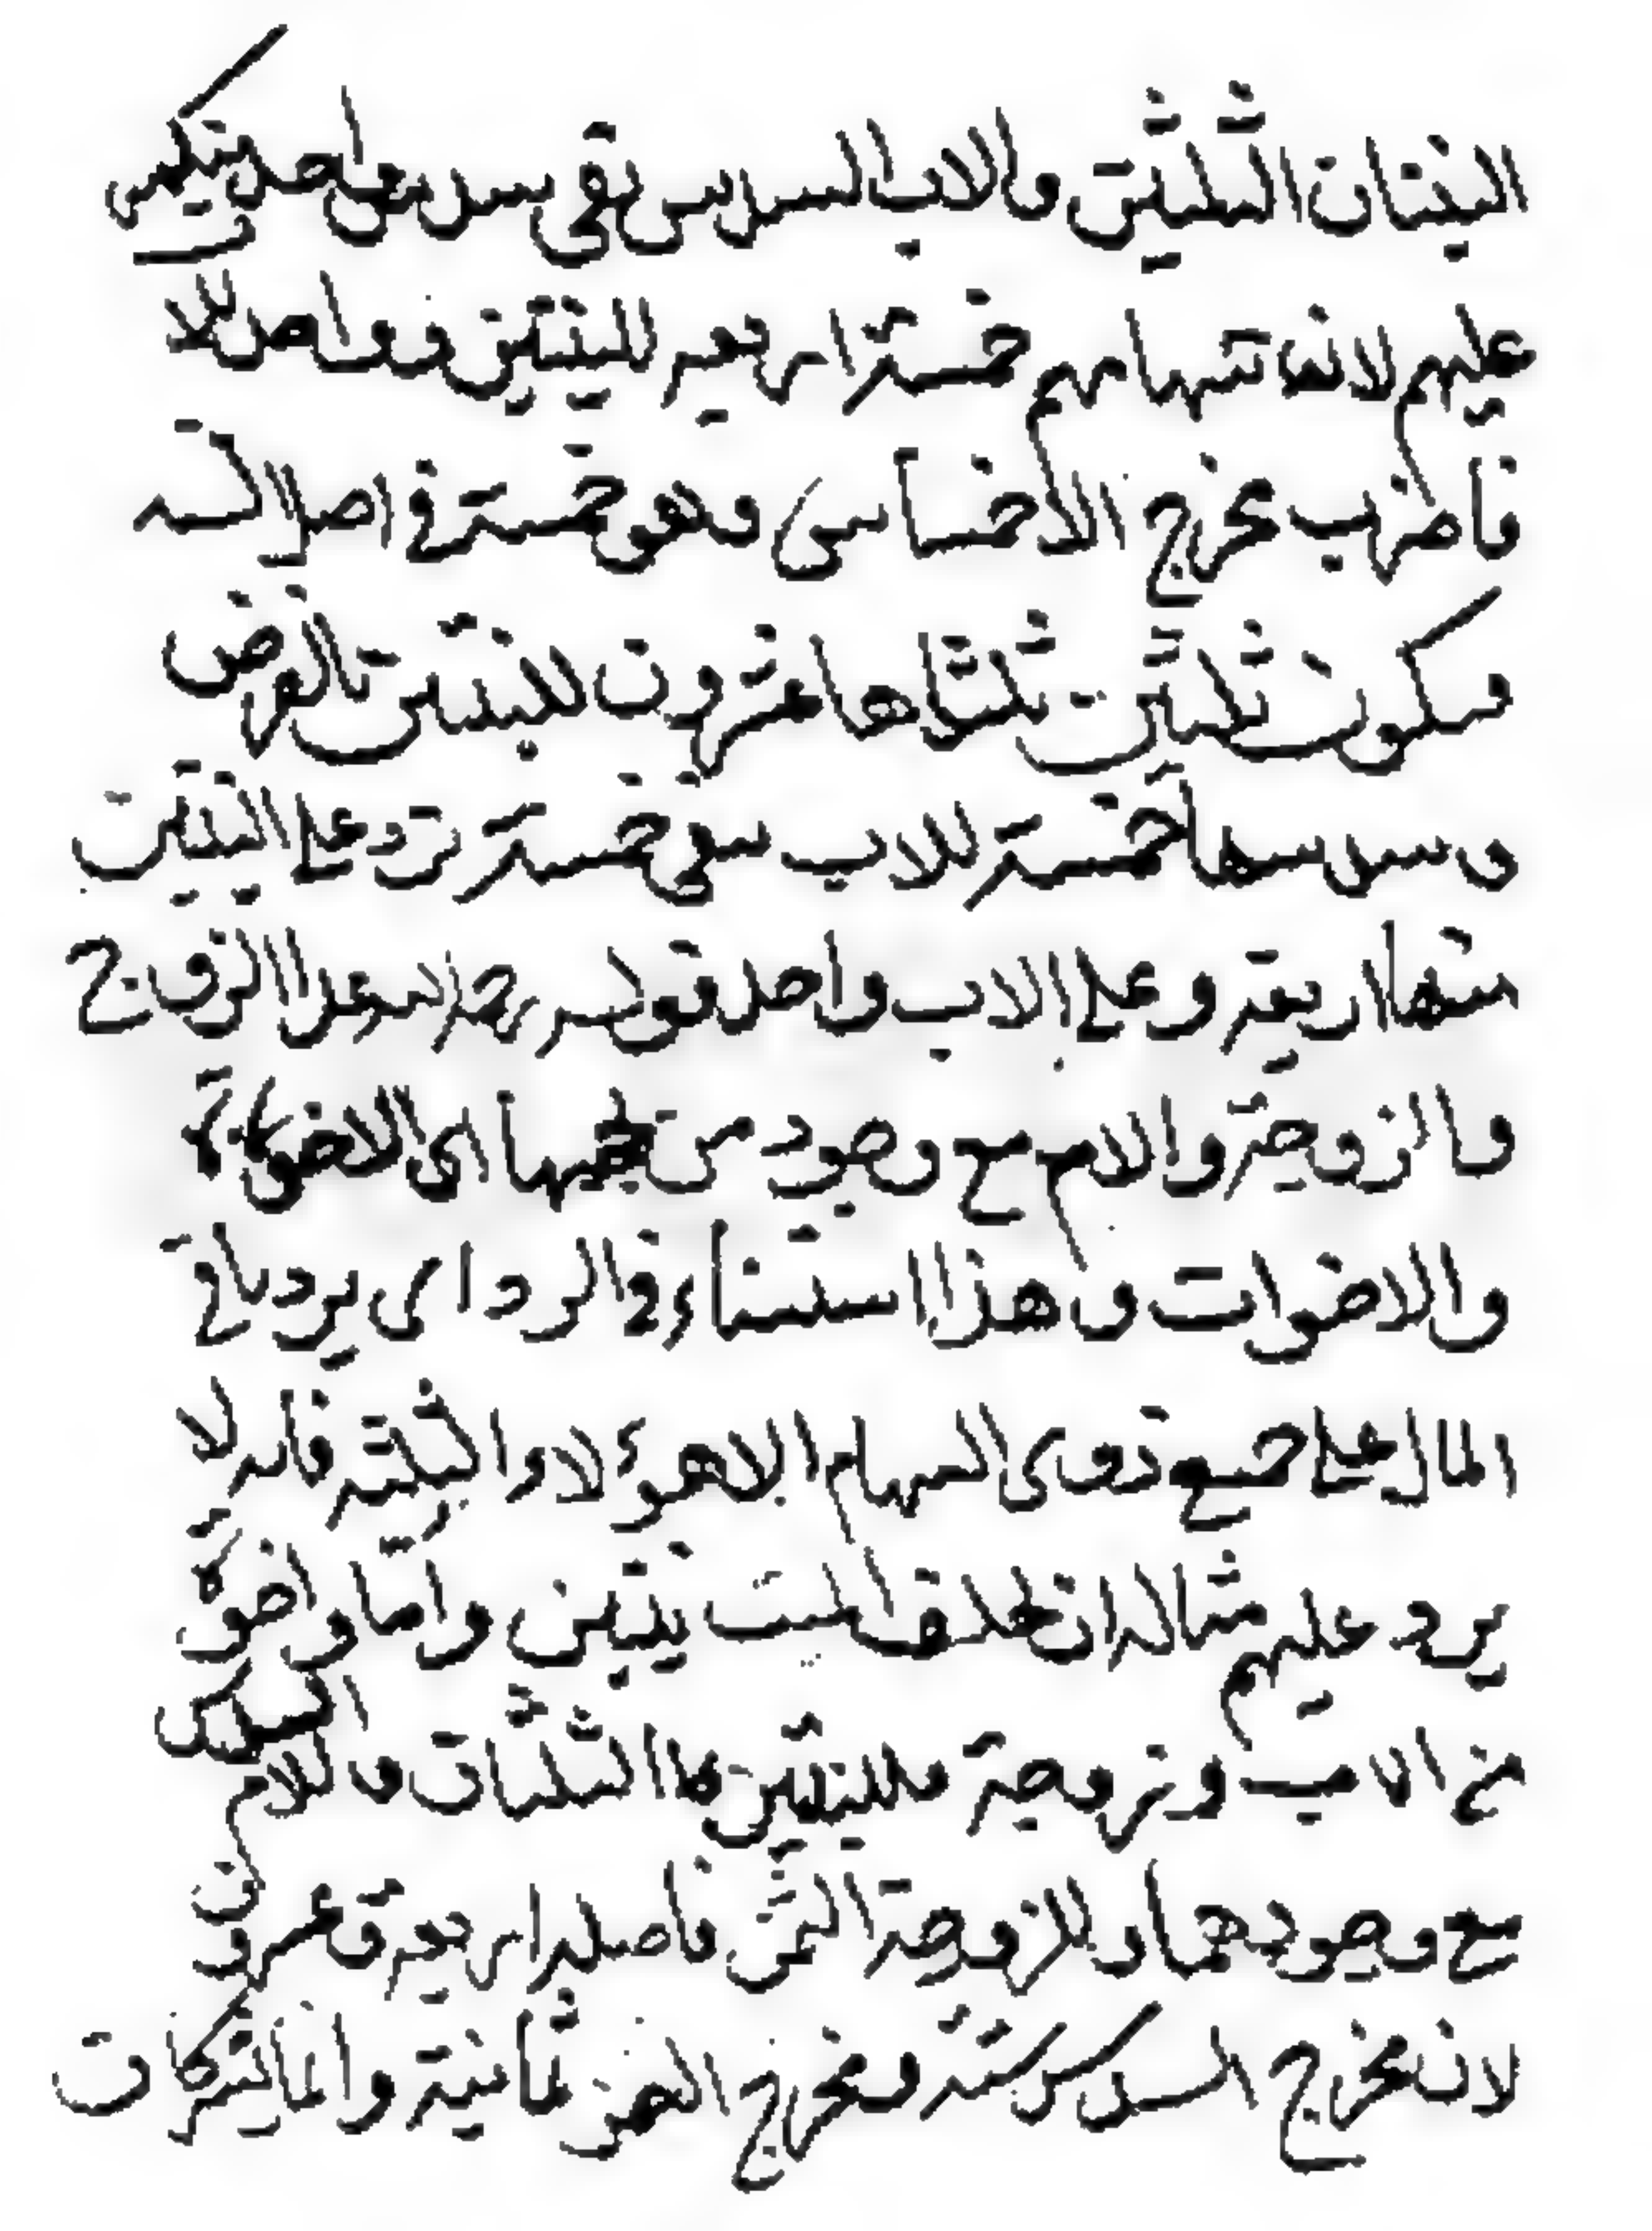 البنتان الثلثين والاب السدس بقى سدس سهم احد ينكسر
عليهم لان سهامهم خمسة اربعة للبنتين وواحد للا
فاضرب مخرج الاخماس وهو خمسة في اصل السته
وتكون ثلثين ثلثاها عشرون للبنتين بالفرض
وسدسها خمسة للاب بقى خمسة ترد على البنتين
منها اربعة وعلى الاب واحد قوله رحمه الله عدا الزوج
والزوجة والام مع وجود من يحجبها اى الاخوة
والاخوات وهذا استثناء في الرد اى يرد باقي
المال على جميع ذوى السهام الا هؤلاء الثلثة فانه لا
يرد عليهم مثاله ان يخلف الميت بنتين واما واخوة
من الاب وزوجة فللبنتين هاا الثلثان وللام السدس
مع وجودها وللزوجة الثمن فاصله اربعة وعشرون
لان مخرج السدس ستة ومخرج الثمن ثمانية والمشتركات